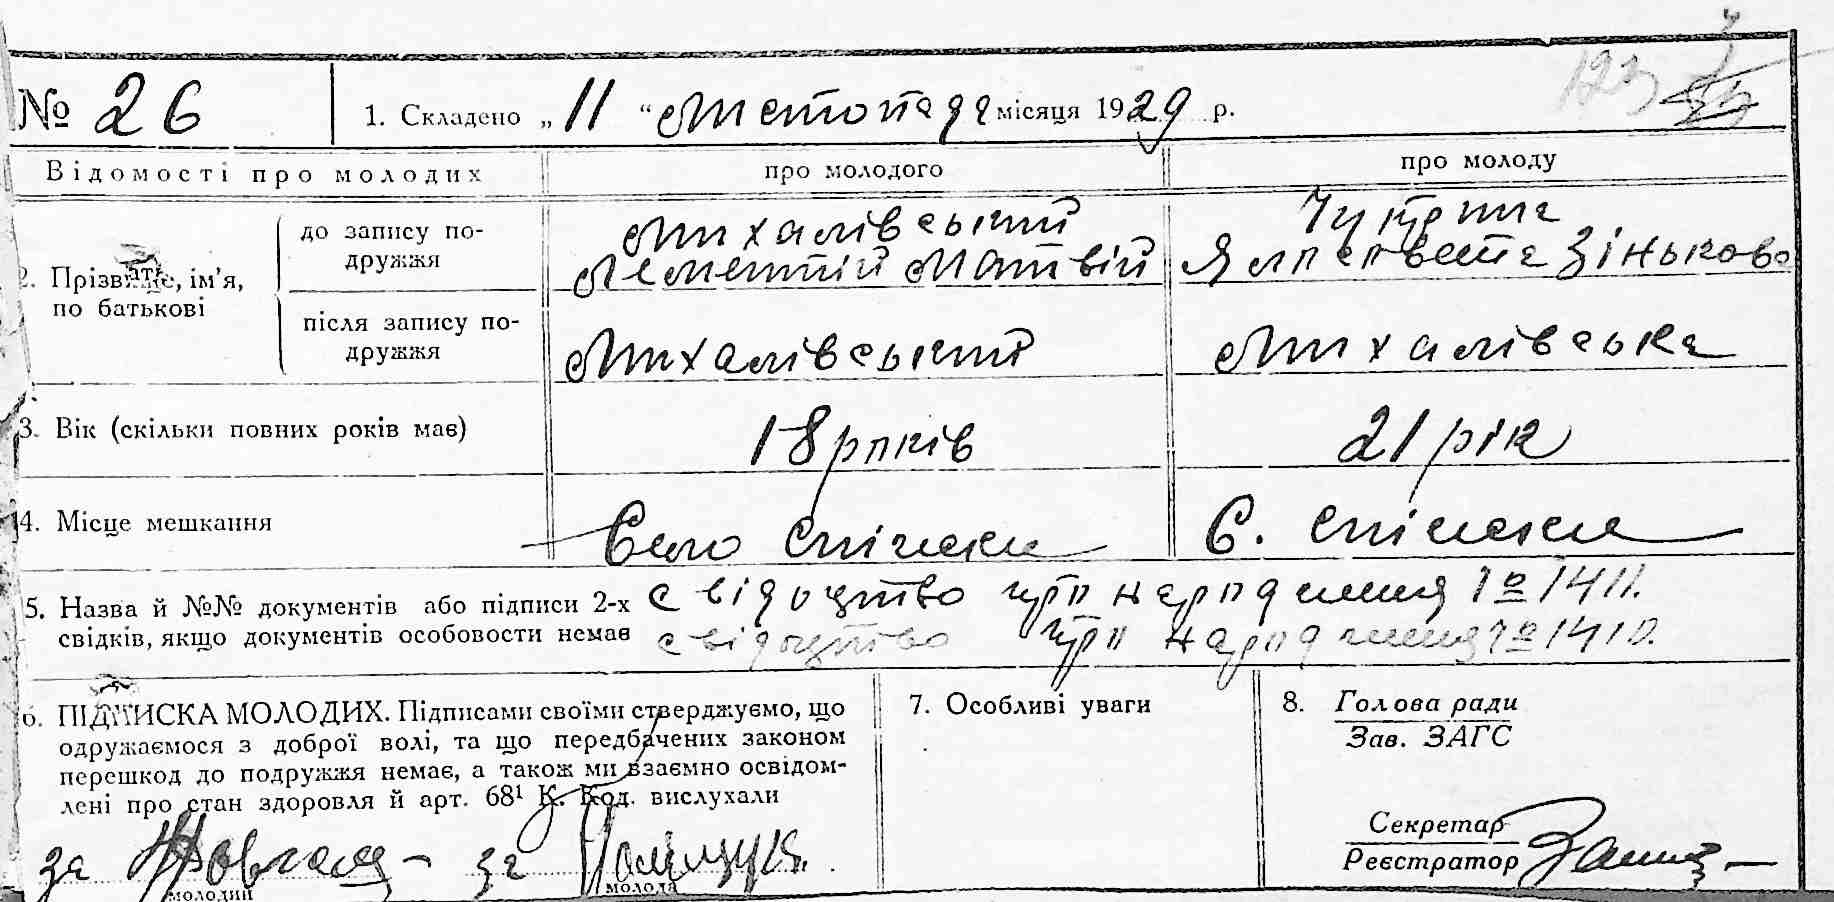 123
№ 26
1. Складено „ 11 “ листопада місяця 1929 р.
Відомості про молодих
про молодого
про молоду
2. Прізвище, ім’я, по батькові
до запису по-
дружжя
Михалівський
Лементій Матвій
Чуприна
Зінькова
після запису по-
дружжя
Михалівський
Михалівська
3. Вік (скільки повних років має)
18 років
21 рік
4. Місце мешкання
Село Спічинки
С. Спічинки
5. Назва й №№ документів або підписи 2-х
свідків, якщо документів особовости немає
свідоцтво про народження № 1411.
свідоцтво про народження № 1410.
6. ПІДПИСКА МОЛОДИХ. Підписами своїми стверджуємо, що
одружаємося з доброї волі, та що передбачених законом
перешкод до подружжя немає, а також ми взаємно освідом-
лені про стан здоровля й арт. 68¹ К. Код. вислухали
за
за
молодий
молода
7. Особливі уваги
8. Голова ради
Зав. ЗАГС
Секретар
Реєстратор